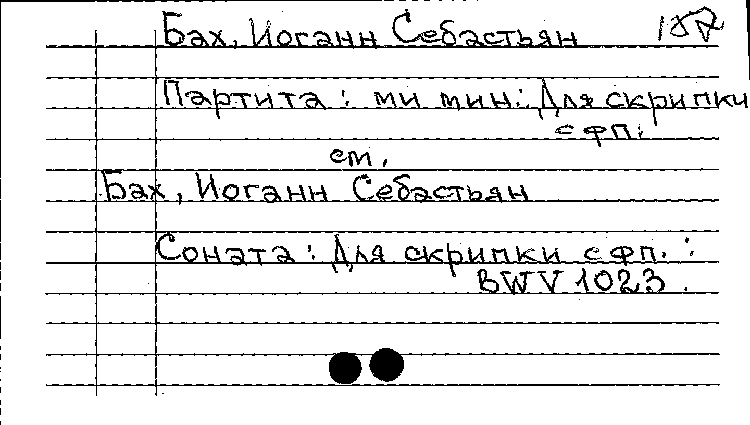 Бах, Иоганн Себастьян
Партита: ми мин: Для скрипки
с фп.
см.
Бах, Иоганн Себастьян
Соната: Для скрипки с фп.:
BWV 1023.